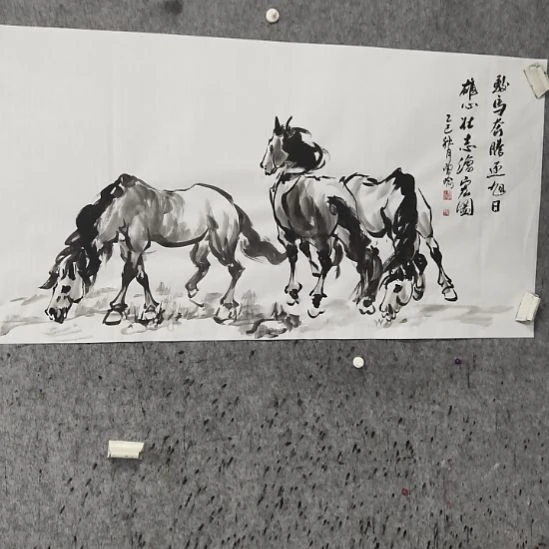 骏马奔腾迎旭日
雄心壮志绘宏图
乙巳秋月